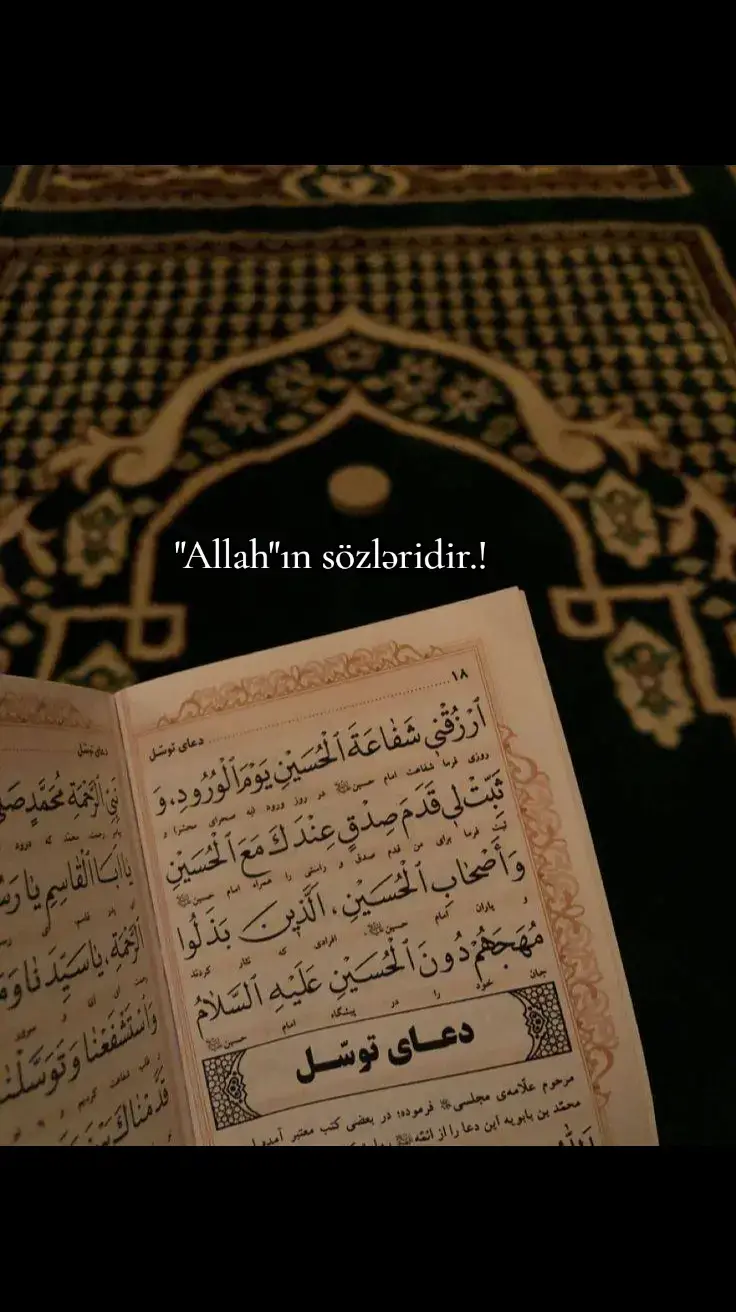 "Allah"ın sözləridir.!
١٨
دعای توسّل
ٱرْزُقْنِي شَفَاعَةَ ٱلْحُسَيْنِ يَوْمَ ٱلْوُرُودِ، وَ
روزی فرما شفاعت امام حسین در روز ورود (به صحرای محشر) و
ثَبِّتْ لِي قَدَمَ صِدْقٍ عِنْدَكَ مَعَ ٱلْحُسَيْنِ
ثبت فرما برای من قدم صدق و راستی را همراه امام حسین
وَأَصْحَابِ ٱلْحُسَيْنِ، ٱلَّذِينَ بَذَلُوا
و یاران امام حسین، افرادی که نثار کردند
مُهَجَهُمْ دُونَ ٱلْحُسَيْنِ عَلَيْهِ ٱلسَّلَامُ
جان خود را در پیشگاه امام حسین
دعـای توسّـل
مرحوم علّامه‌ی مجلسی فرموده: در بعضی کتب معتبر آمده
محمّد بن بابویه این دعا را از ائمّه
دعای توسّل
نَبِيِّ ٱلرَّحْمَةِ مُحَمَّدٍ
يَا أَبَا ٱلْقَاسِمِ يَا
ٱلرَّحْمَةِ، يَا سَيِّدَنَا وَ
وَٱسْتَشْفَعْنَا وَتَوَسَّلْنَا
قَدَّمْنَاكَ